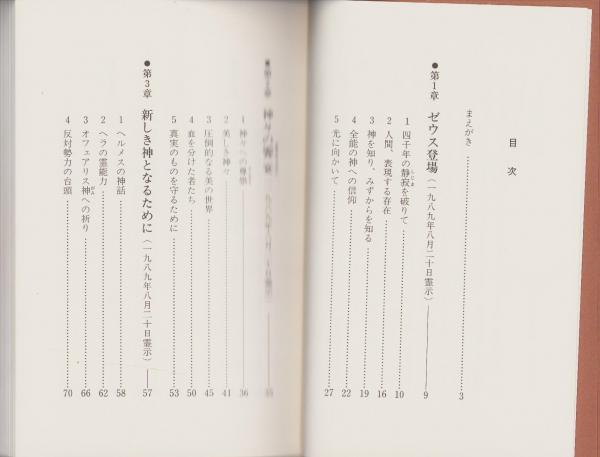 目次
まえがき 3
●第1章 ゼウス登場（一九八九年八月二十日霊示） 9
1 四千年の静寂を破りて 10
しじま
2 人間、表現する存在 16
3 神を知り、みずからを知る 19
4 全能の神への信仰 22
5 光に向かいて 27
●第2章 神々の
1 神々への 36
2 美しき神々 41
3 圧倒的なる美の世界 45
4 血を分けた者たち 50
5 真実のものを守るために 53
●第3章 新しき神となるために（一九八九年八月二十日霊示） 57
1 ヘルメスの神話 58
2 ヘラの霊能力 62
3 オフェアリス神への祈り 66
4 反対勢力の台頭 70